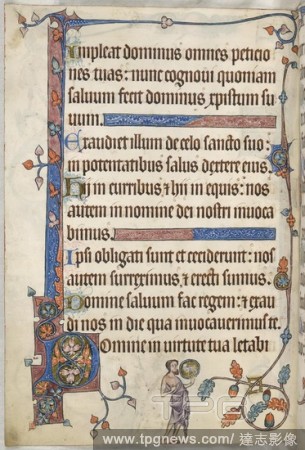 Impleat dominus omnes peticio
nes tuas: nunc cognoui quoniam
saluum fecit dominus xpistum su
uum.
Exaudiet illum de celo sancto suo:
in potentatibus salus dextere eius.
Hij in curribus & hij in equis: nos
autem in nomine dei nostri inuoca
bimus.
Ipsi obligati sunt et ceciderunt: nos
autem surreximus, & erecti sumus.
Domine saluum fac regem: & exau
di nos in die qua inuocauerimus te.
Domine in virtute tua letabi
TPG
www.tpgnews.com/ 達志影像